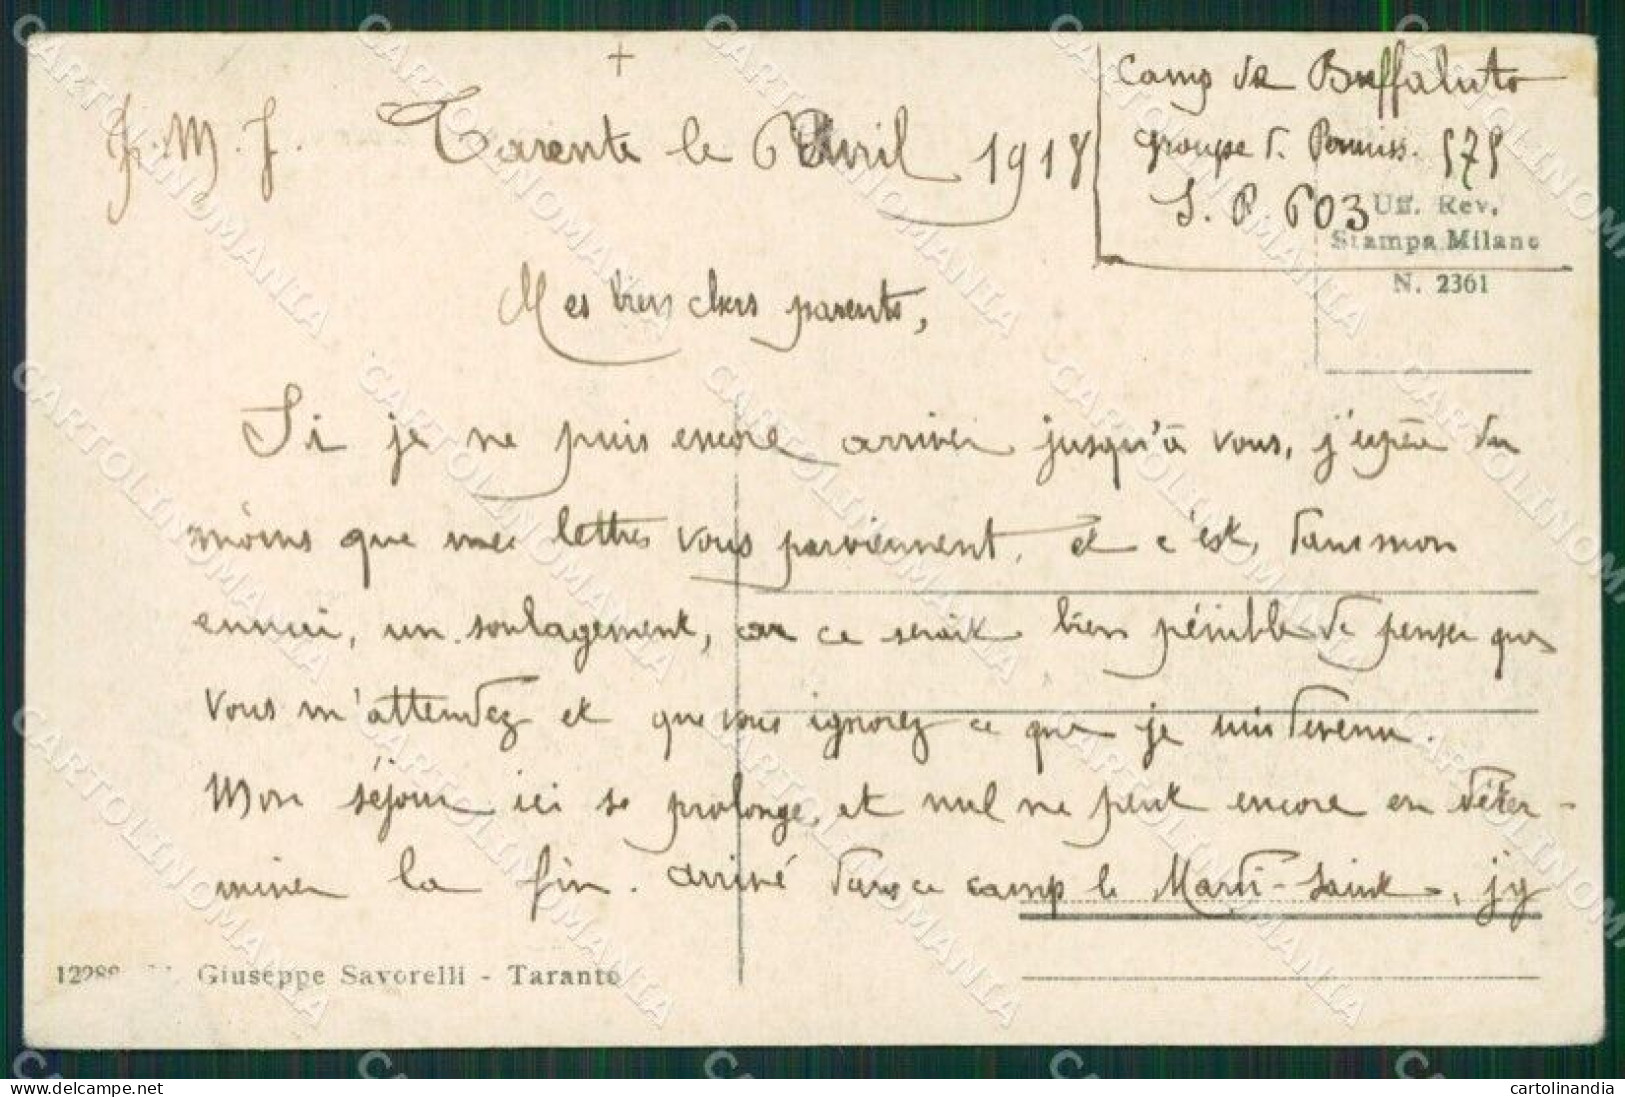 +
J. M. J. Tarente le 6 Avril 1918
Camp de Buffaluto
groupe d. Permiss. 575
S. P. 603
Uff. Rev.
Stampa Milano
N. 2361
Mes bien chers parents,
Si je ne puis encore arriver jusqu'à vous, j'espère du
moins que mes lettres vous parviennent, et c'est, dans mon
ennui, un soulagement, car ce serait bien pénible de penser que
vous m'attendez et que vous ignorez ce que je suis devenu.
Mon séjour ici se prolonge, et nul ne peut encore en déter-
miner la fin. Arrivé dans ce camp le Mardi-Saint, j'y
Giuseppe Savorelli - Taranto
CARTOLINOMANIA
cartolinandia.delcampe.net
cartolinandia